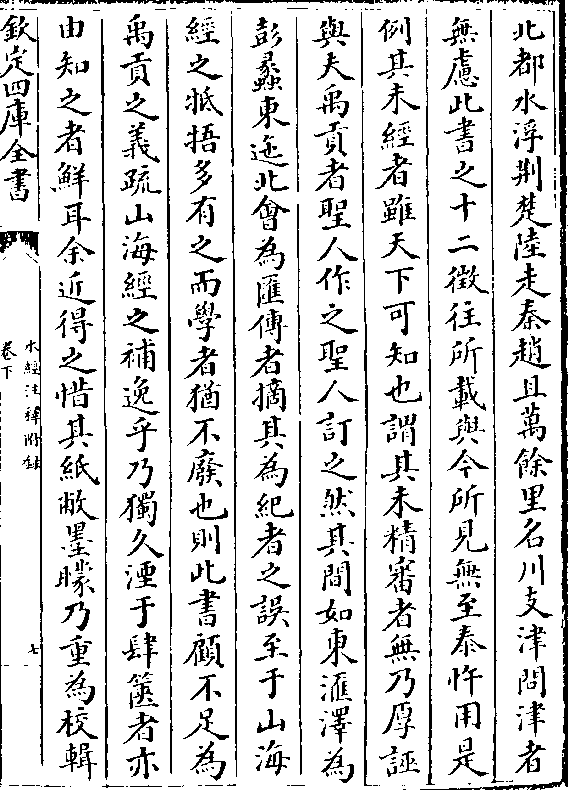 北都水浮荆楚陸走秦趙且萬餘里名川支津問津者
無慮此書之十二徵往所載與今所見無至泰忤用是
例其未經者雖天下可知也謂其未精審者無乃厚誣
與夫禹貢者聖人作之聖人訂之然其間如東滙澤為
彭蠡東迆北會為匯傳者摘其為紀者之誤至于山海
經之牴牾多有之而學者猶不廢也則此書顧不足為
禹貢之義疏山海經之補逸乎乃獨久湮于肆篋者亦
由知之者鮮耳余近得之惜其紙敝墨矇乃重為校輯
欽定四庫全書
水經注釋附錄
卷下
七